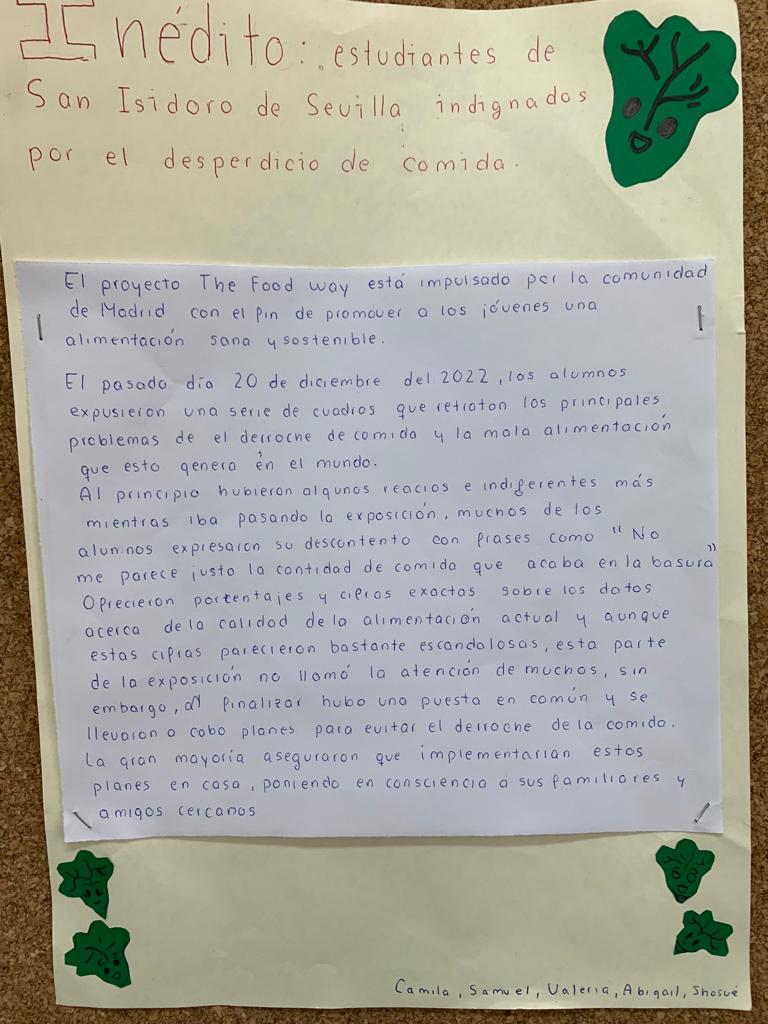 Inédito: estudiantes de
San Isidoro de Sevilla indignados
por el desperdicio de comida.
El proyecto The Food way está impulsado por la comunidad
de Madrid con el fin de promover a los jóvenes una
alimentación sana y sostenible.
El pasado día 20 de diciembre del 2022, los alumnos
expusieron una serie de cuadros que retratan los principales
problemas de el derroche de comida y la mala alimentación
que esto genera en el mundo.
Al principio hubieron algunos reacios e indiferentes más
mientras iba pasando la exposición, muchos de los
alumnos expresaron su descontento con frases como "No
me parece justo la cantidad de comida que acaba en la basura"
Ofrecieron portentajes y cifras exactas sobre los datos
acerca de la calidad de la alimentación actual y aunque
estas cifras parecieron bastante escandalosas, esta parte
de la exposición no llamó la atención de muchos, sin
embargo, al finalizar hubo una puesta en común y se
llevaron a cabo planes para evitar el derroche de la comida.
La gran mayoría aseguraron que implementarían estos
planes en casa, poniendo en consciencia a sus familiares y
amigos cercanos
Camila, Samuel, Valeria, Abigail, Jhosué